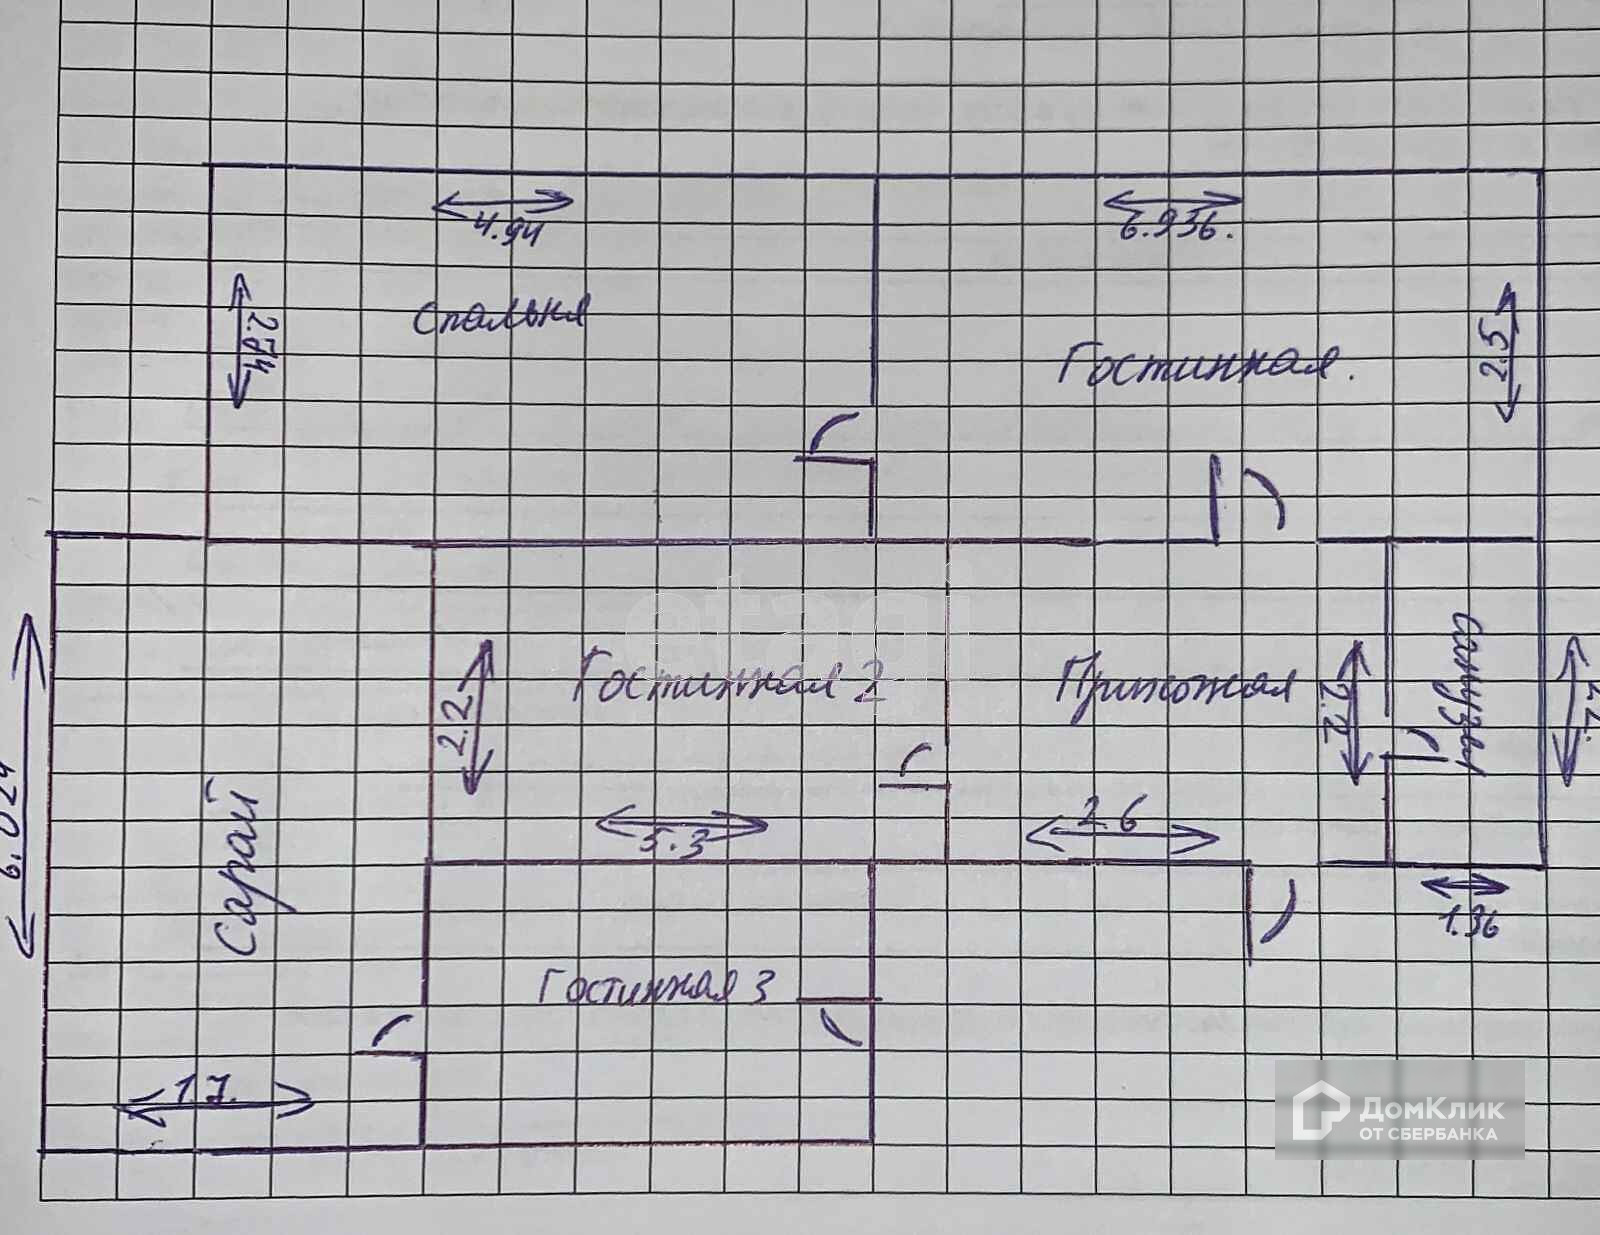 4.94
6.936.
2.794
Спальня
Гостинная.
2.5
etagi
2.2
Гостинная 2
Прихожая
2.2
санузел
2.2.
6.024
Сарай
5.3
2.6
1.36
Гостинная 3
1.7.
ДомКлик
ОТ СБЕРБАНКА